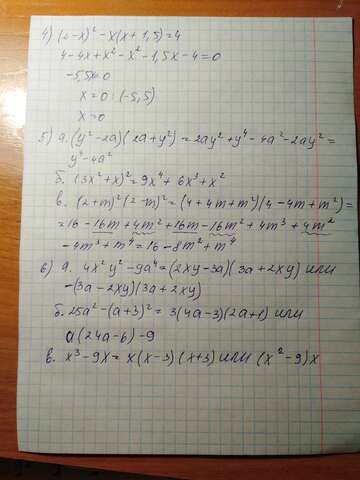 4) (2-x)² - x(x+1,5)=4
4-4x+x²-x²-1,5x-4=0
-5,5x=0
x=0:(-5,5)
x=0
5) а. (y²-2a)(2a+y²)=2ay²+y⁴-4a²-2ay²=
y⁴-4a²
б. (3x²+x)²=9x⁴+6x³+x²
в. (2+m)²(2-m)²=(4+4m+m²)(4-4m+m²)=
=16-16m+4m²+16m-16m²+4m³+4m²
-4m³+m⁴=16-8m²+m⁴
6) а. 4x²y²-9a⁴=(2xy-3a)(3a+2xy) или
-(3a-2xy)(3a+2xy)
б. 25a²-(a+3)²=3(4a-3)(2a+1) или
a(24a-6)-9
в. x³-9x=x(x-3)(x+3) или (x²-9)x